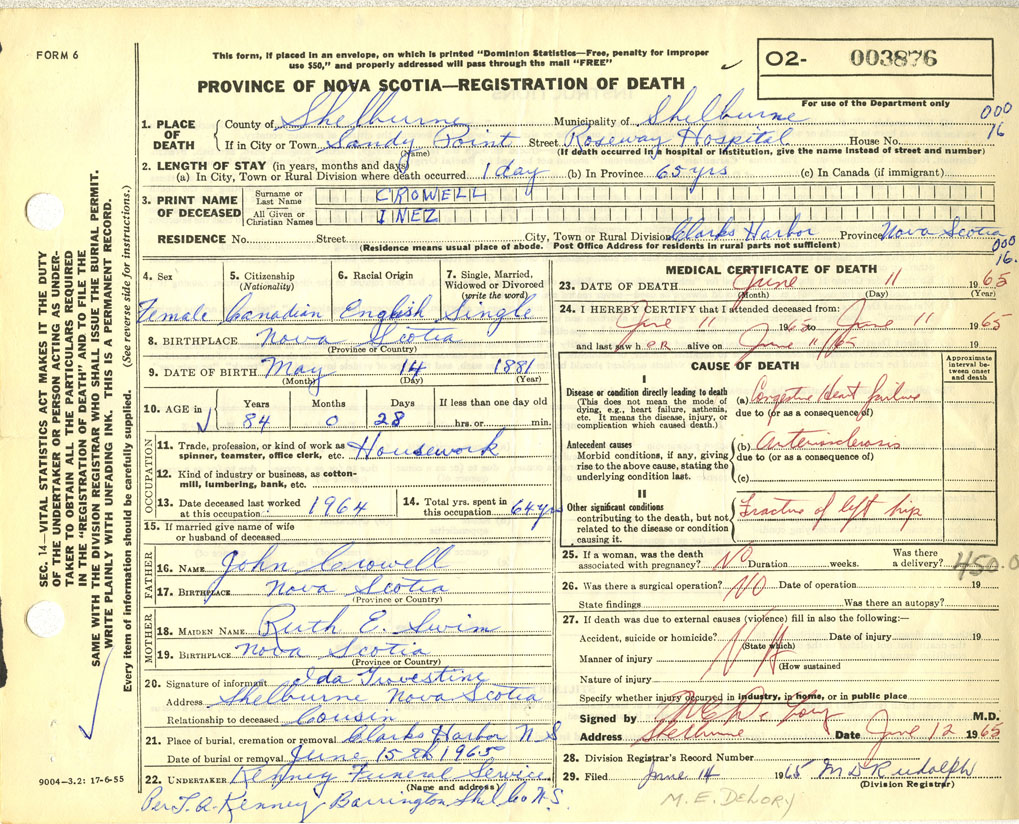 FORM 6
This form, if placed in an envelope, on which is printed "Dominion Statistics—Free, penalty for improper
use $50," and properly addressed will pass through the mail "FREE"
PROVINCE OF NOVA SCOTIA—REGISTRATION OF DEATH
O2- 003876
For use of the Department only
000
76
SEC. 14—VITAL STATISTICS ACT MAKES IT THE DUTY
OF THE UNDERTAKER OR PERSON ACTING AS UNDER-
TAKER TO OBTAIN ALL THE PARTICULARS REQUIRED
IN THE "REGISTRATION OF DEATH" AND TO FILE THE
SAME WITH THE DIVISION REGISTRAR WHO SHALL ISSUE THE BURIAL PERMIT.
WRITE PLAINLY WITH UNFADING INK. THIS IS A PERMANENT RECORD.
Every item of information should be carefully supplied. (See reverse side for instructions.)
1. PLACE OF DEATH
County of Shelburne Municipality of Shelburne
If in City or Town Sandy Point Street Roseway Hospital House No.
(Name) (If death occurred in a hospital or institution, give the name instead of street and number)
2. LENGTH OF STAY (in years, months and days)
(a) In City, Town or Rural Division where death occurred 1 day (b) In Province 65 yrs (c) In Canada (if immigrant)
3. PRINT NAME OF DECEASED
Surname or Last Name CROWELL
All Given or Christian Names INEZ
RESIDENCE No. Street City, Town or Rural Division Clarks Harbor Province Nova Scotia
(Residence means usual place of abode. Post Office Address for residents in rural parts not sufficient)
000
16.
4. Sex 5. Citizenship (Nationality) 6. Racial Origin 7. Single, Married, Widowed or Divorced (write the word)
Female Canadian English Single
8. BIRTHPLACE Nova Scotia
(Province or Country)
9. DATE OF BIRTH May 14 1881
(Month) (Day) (Year)
10. AGE in Years Months Days If less than one day old
84 0 28 hrs. or min.
OCCUPATION
11. Trade, profession, or kind of work as spinner, teamster, office clerk, etc. Housework
12. Kind of industry or business, as cotton-mill, lumbering, bank, etc.
13. Date deceased last worked at this occupation 1964 14. Total yrs. spent in this occupation 64 yrs
15. If married give name of wife
or husband of deceased
FATHER
16. NAME John Crowell
17. BIRTHPLACE Nova Scotia
(Province or Country)
MOTHER
18. MAIDEN NAME Ruth E. Swim
19. BIRTHPLACE Nova Scotia
(Province or Country)
20. Signature of informant Ida
Address Shelburne Nova Scotia
Relationship to deceased Cousin
21. Place of burial, cremation or removal Clarks Harbor N S
Date of burial or removal June 15th 1965
22. UNDERTAKER Kenney Funeral Service
(Name and address)
Per. T. A. Kenney Barrington Shel Co N.S.
9004—3.2: 17-6-55
MEDICAL CERTIFICATE OF DEATH
23. DATE OF DEATH June 11 1965
(Month) (Day) (Year)
24. I HEREBY CERTIFY that I attended deceased from:
June 11 196 to June 11 1965
and last saw her alive on June 11/65 19
CAUSE OF DEATH
Approximate interval between onset and death
I
Disease or condition directly leading to death
(This does not mean the mode of
dying, e.g., heart failure, asthenia,
etc. It means the disease, injury, or
complication which caused death.)
(a) Congestive Heart failure
due to (or as a consequence of)
Antecedent causes
Morbid conditions, if any, giving
rise to the above cause, stating the
underlying condition last.
(b) Arteriosclerosis
due to (or as a consequence of)
(c)
II
Other significant conditions
contributing to the death, but not
related to the disease or condition
causing it.
Fracture of left hip
25. If a woman, was the death associated with pregnancy? NO Duration weeks. Was there a delivery?
450.0
26. Was there a surgical operation? NO Date of operation 19
State findings Was there an autopsy?
27. If death was due to external causes (violence) fill in also the following:—
Accident, suicide or homicide? Date of injury 19
(State which)
NA
Manner of injury
(How sustained
Nature of injury
Specify whether injury occurred in industry, in home, or in public place
Signed by M E DeLory M.D.
Address Shelburne Date June 12 1965
28. Division Registrar's Record Number
29. Filed June 14 1965 M D Rudolph
(Division Registrar)
M. E. DELORY